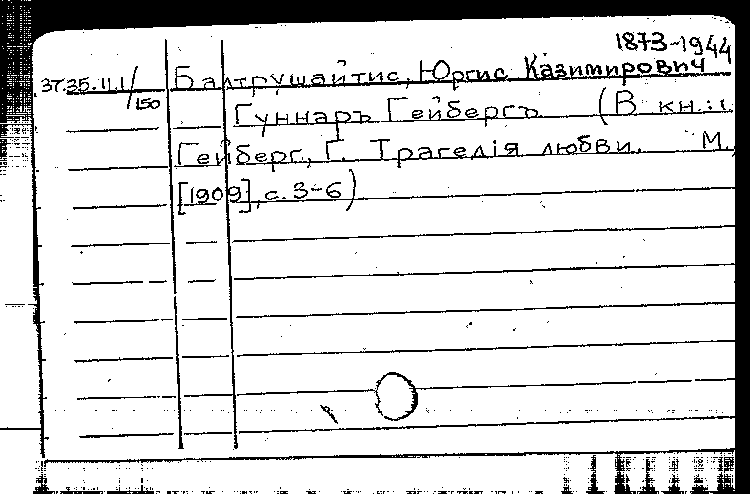 1873-1944
37.35.11.1/150 Балтрушайтис, Юргис Казимирович
Гуннаръ Гейбергъ (В кн.:
Гейберг, Г. Трагедія любви. М.,
[1909], с. 3-6)